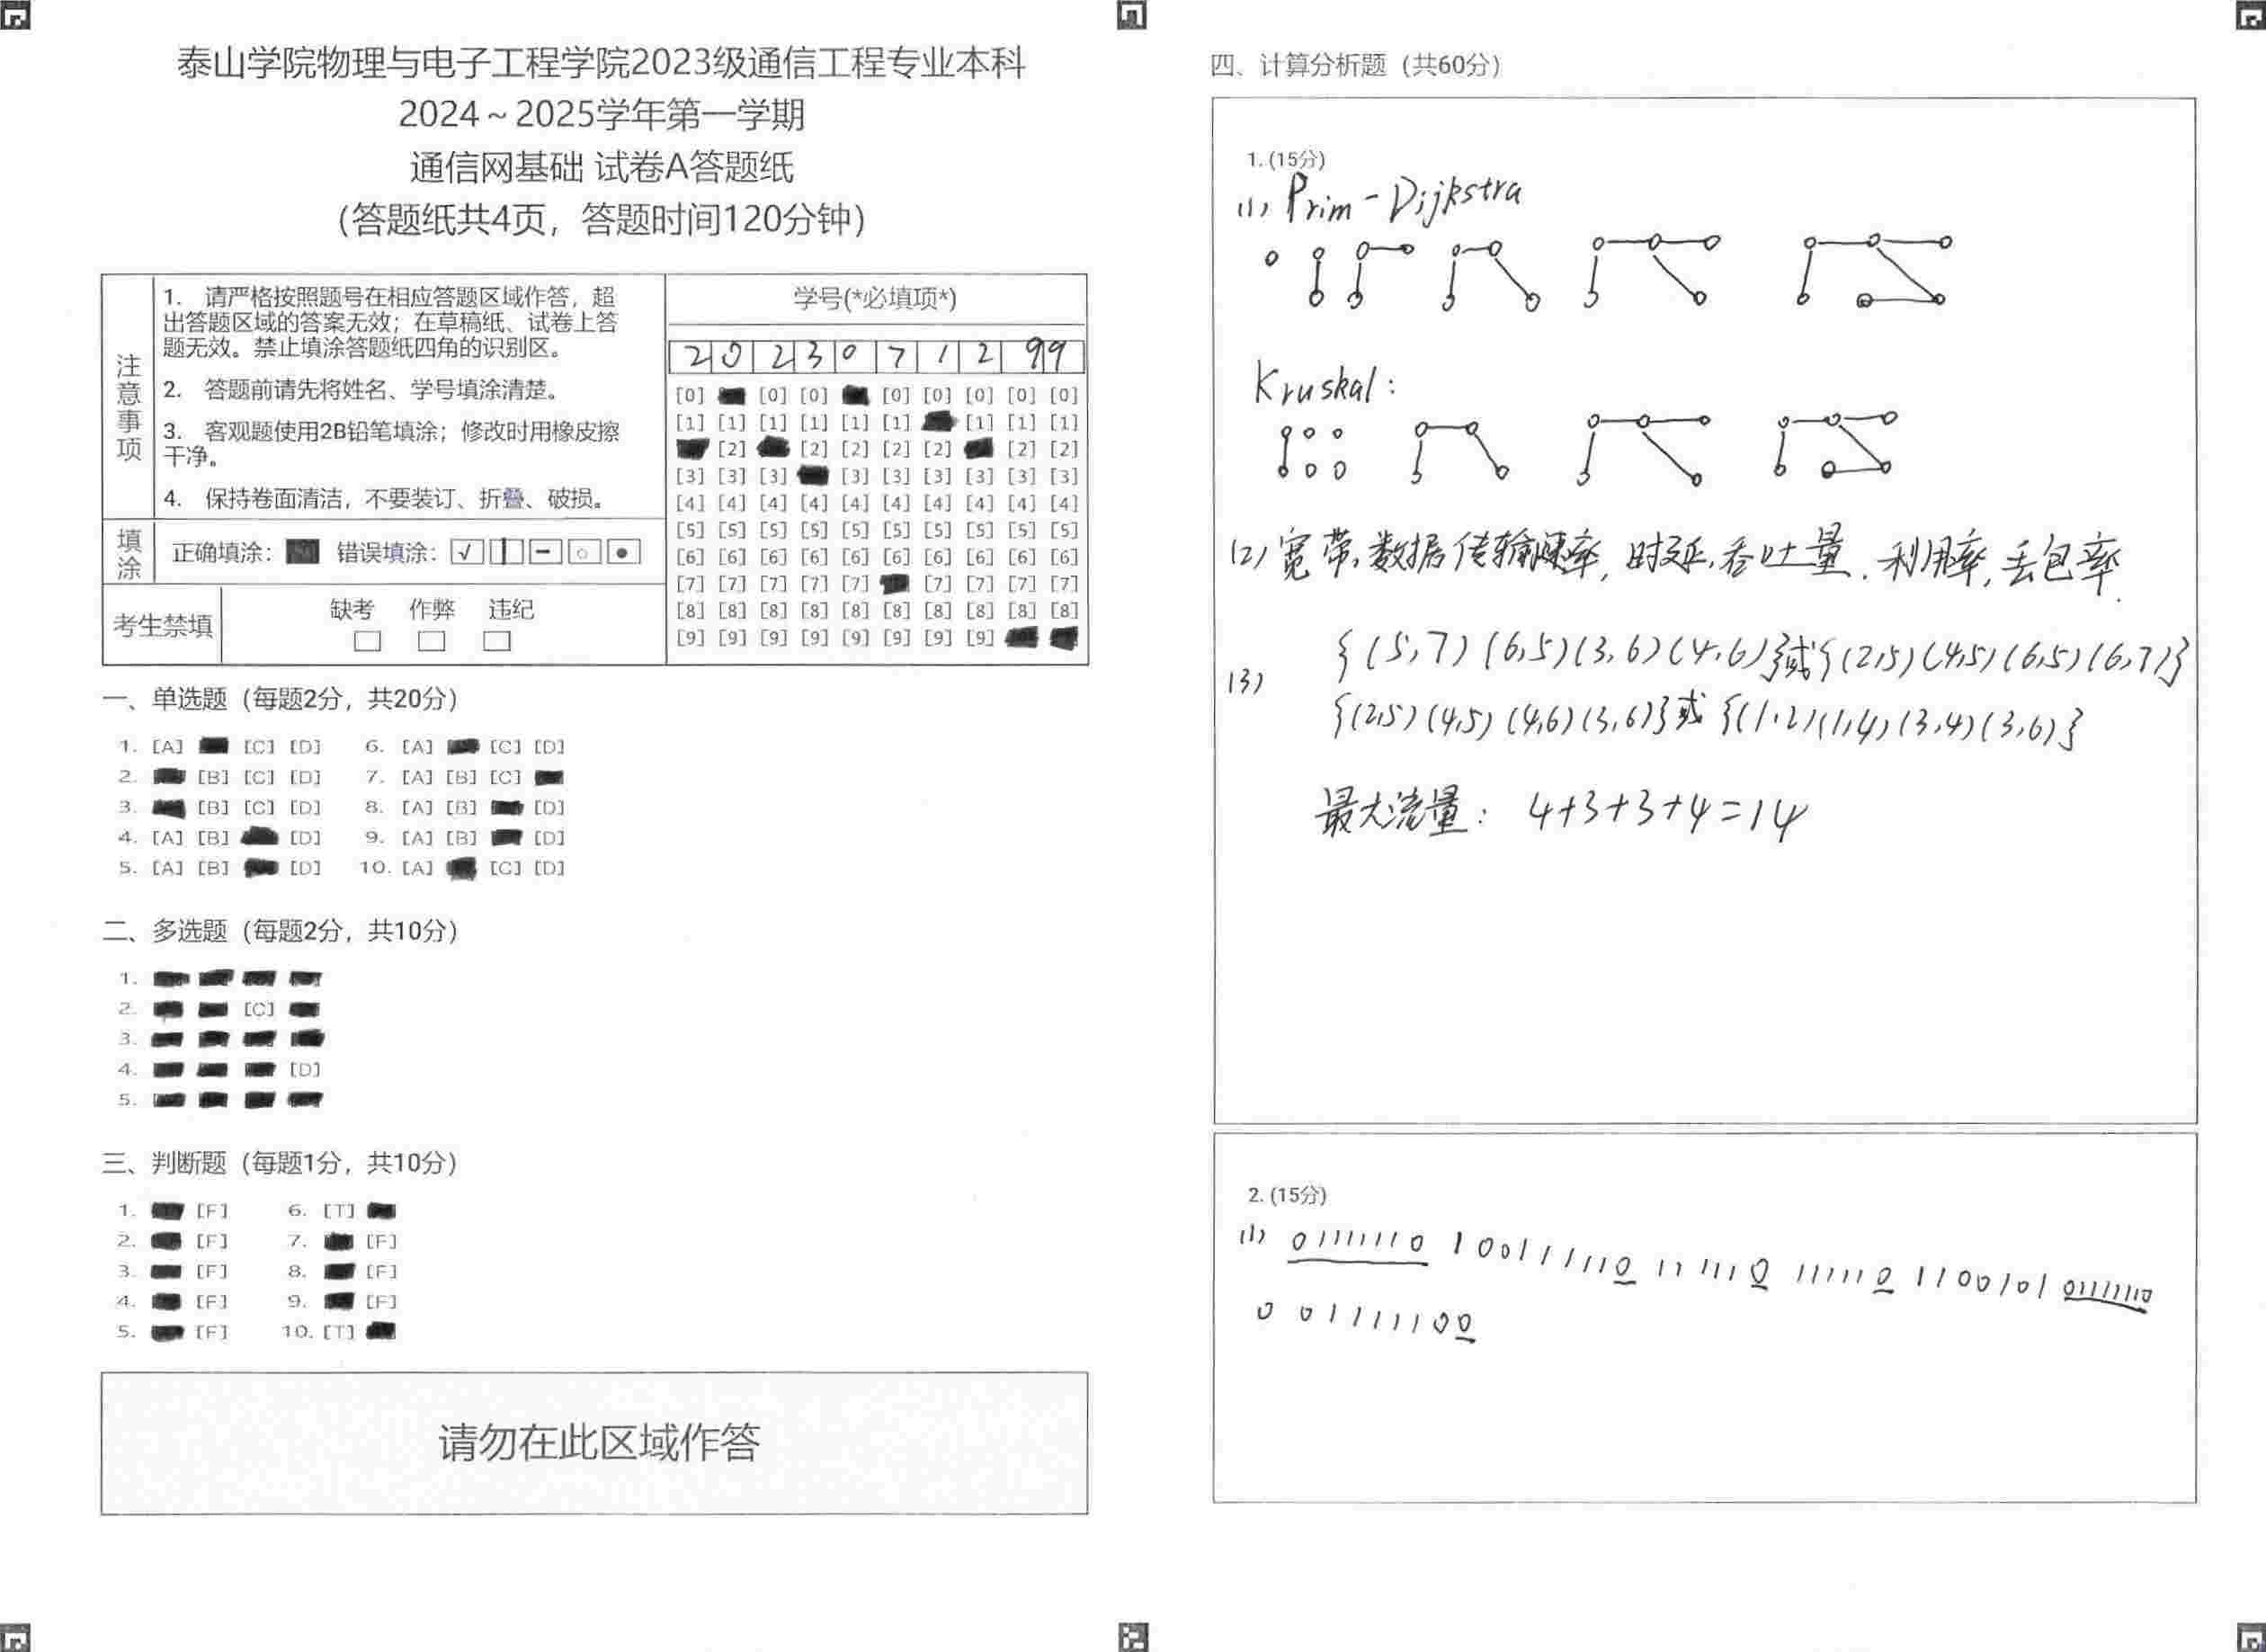 泰山学院物理与电子工程学院2023级通信工程专业本科
2024～2025学年第一学期
通信网基础 试卷A答题纸
（答题纸共4页，答题时间120分钟）
注意事项
1. 请严格按照题号在相应答题区域作答，超
出答题区域的答案无效；在草稿纸、试卷上答
题无效。禁止填涂答题纸四角的识别区。
2. 答题前请先将姓名、学号填涂清楚。
3. 客观题使用2B铅笔填涂；修改时用橡皮擦
干净。
4. 保持卷面清洁，不要装订、折叠、破损。
填涂
正确填涂： 错误填涂：
考生禁填
缺考 作弊 违纪
学号(*必填项*)
2 0 2 3 0 7 1 2 9 9
[0] [0] [0] [0] [0] [0] [0] [0]
[1] [1] [1] [1] [1] [1] [1] [1] [1]
[2] [2] [2] [2] [2] [2] [2]
[3] [3] [3] [3] [3] [3] [3] [3] [3]
[4] [4] [4] [4] [4] [4] [4] [4] [4] [4]
[5] [5] [5] [5] [5] [5] [5] [5] [5] [5]
[6] [6] [6] [6] [6] [6] [6] [6] [6] [6]
[7] [7] [7] [7] [7] [7] [7] [7] [7]
[8] [8] [8] [8] [8] [8] [8] [8] [8] [8]
[9] [9] [9] [9] [9] [9] [9] [9]
一、单选题（每题2分，共20分）
1. [A] [C] [D] 6. [A] [C] [D]
2. [B] [C] [D] 7. [A] [B] [C]
3. [B] [C] [D] 8. [A] [B] [D]
4. [A] [B] [D] 9. [A] [B] [D]
5. [A] [B] [D] 10. [A] [C] [D]
二、多选题（每题2分，共10分）
1.
2. [C]
3.
4. [D]
5.
三、判断题（每题1分，共10分）
1. [F] 6. [T]
2. [F] 7. [F]
3. [F] 8. [F]
4. [F] 9. [F]
5. [F] 10. [T]
请勿在此区域作答
四、计算分析题（共60分）
1. (15分)
(1) Prim-Dijkstra
Kruskal:
(2) 宽带,数据传输速率,时延,吞吐量,利用率,丢包率.
(3) {(5,7)(6,5)(3,6)(4,6)}或{(2,5)(4,5)(6,5)(6,7)}
{(2,5)(4,5)(4,6)(3,6)}或{(1,2)(1,4)(3,4)(3,6)}
最大流量: 4+3+3+4=14
2. (15分)
(1) 01111110 100111110 111110 111110 1100101 01111110
0 01111100